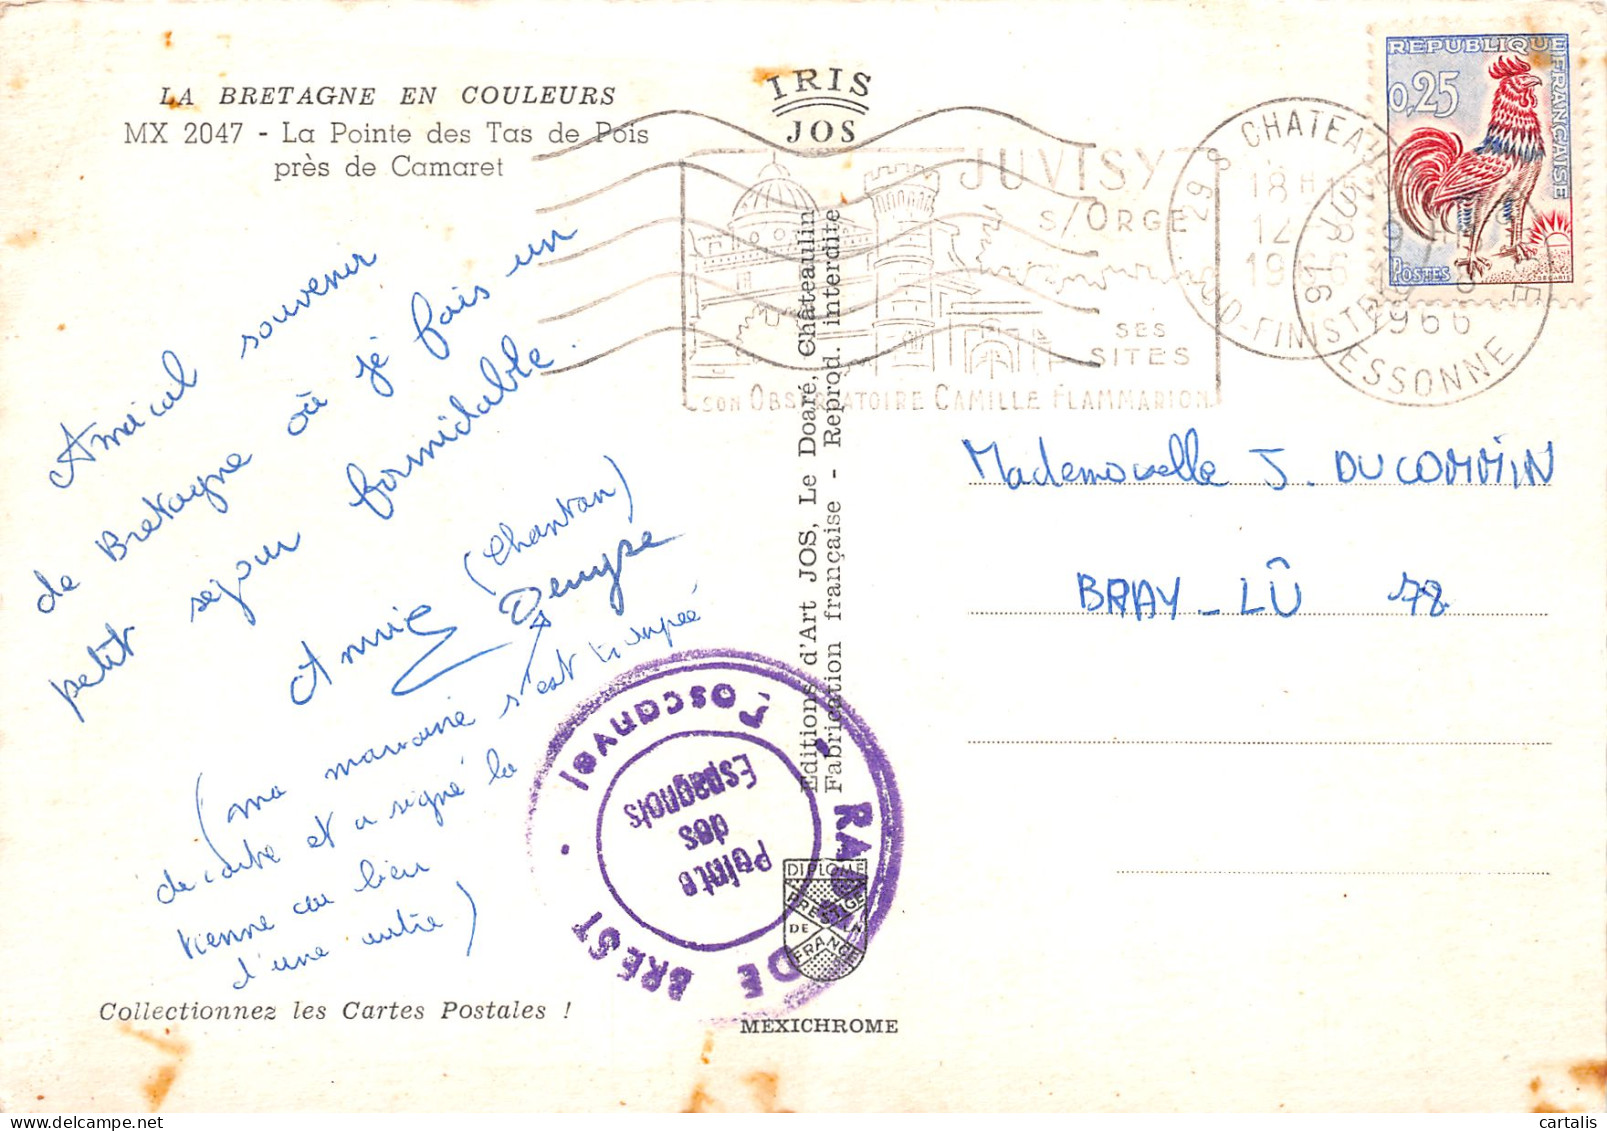 LA BRETAGNE EN COULEURS
MX 2047 - La Pointe des Tas de Pois
près de Camaret
IRIS
JOS
REPUBLIQUE
FRANÇAISE
0,25
POSTES
JUVISY
S/ORGE
SES
SITES
SON OBSERVATOIRE CAMILLE FLAMMARION
29 S CHATEAU
18 H
12
19
UD-FINISTE
91 JUV
1966
ESSONNE
Amical souvenir
de Bretagne où je fais un
petit séjour formidable.
Annie (Chantan)
Denyse
(ma marraine s'est trompée
de carte et a signé la
tienne au lieu
d'une autre)
Collectionnez les Cartes Postales !
Editions d'Art JOS, Le Doaré, Châteaulin
Fabrication française - Reprod. interdite
RADE DE BREST
Toscanvel
Pointe
des
Espagnols
DIPLOME
PRESTIGE
DE
FRANCE
MEXICHROME
Mademoiselle J. DUCOMMIN
BRAY-LÛ 78
cartalis